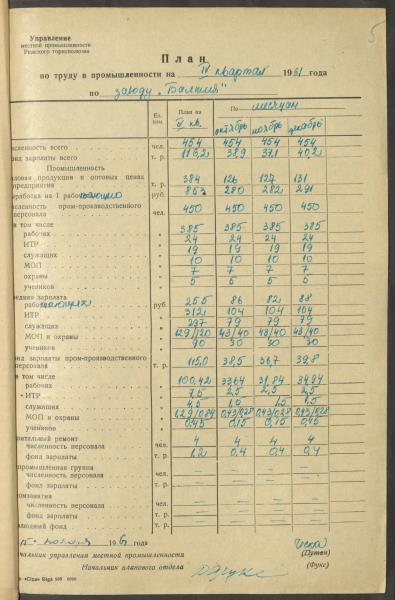 5
Управление
местной промышленности
Рижского горисполкома
План
по труду в промышленности на IV квартал 1961 года
по заводу „Балтия"
Ед. изм. План на IV кв. По месяцам
октябрь ноябрь декабрь
сленность всего чел. 454 454 454 454
нд зарплаты всего т. р. 116,2 38,9 37,1 40,2
Промышленность
ловая продукция в оптовых ценах
предприятия т. р. 384 126 127 131
работка на 1 работающего руб. 853 280 282 291
сленность пром-производственного
персонала чел. 450 450 450 450
том числе
рабочих " 385 385 385 385
ИТР " 24 24 24 24
служащих " 19 19 19 19
МОП " 10 10 10 10
охраны " 7 7 7 7
учеников " 5 5 5 5
едняя зарплата
работающих руб. 255 86 82 88
ИТР " 312 104 104 104
служащих " 237 79 79 79
МОП и охраны " 129/120 43/40 43/40 43/40
учеников " 90 30 30 30
нд зарплаты пром-производственного
персонала т. р. 115,0 38,5 36,7 39,8
том числе
рабочих " 100,42 33,64 31,84 34,94
ИТР " 7,5 2,5 2,5 2,5
служащих " 4,5 1,5 1,5 1,5
МОП и охраны " 1,29/0,84 0,43/0,28 0,43/0,28 0,43/0,28
учеников " 0,45 0,15 0,15 0,15
пительный ремонт
численность персонала чел. 4 4 4 4
фонд зарплаты т. р. 1,2 0,4 0,4 0,4
промышленная группа
численность персонала чел. — — — —
фонд зарплаты т. р. — — — —
численность персонала чел. — — — —
фонд зарплаты т. р. — — — —
фонд т. р.
15 ноября 1961 года
чальник управления местной промышленности (Путан)
Начальник планового отдела (Фукс)